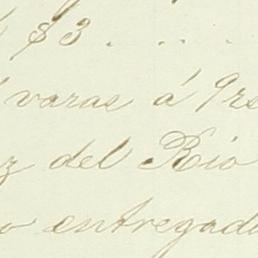 $3 . . . .
varas á 9rs
z del Rio
o entregado